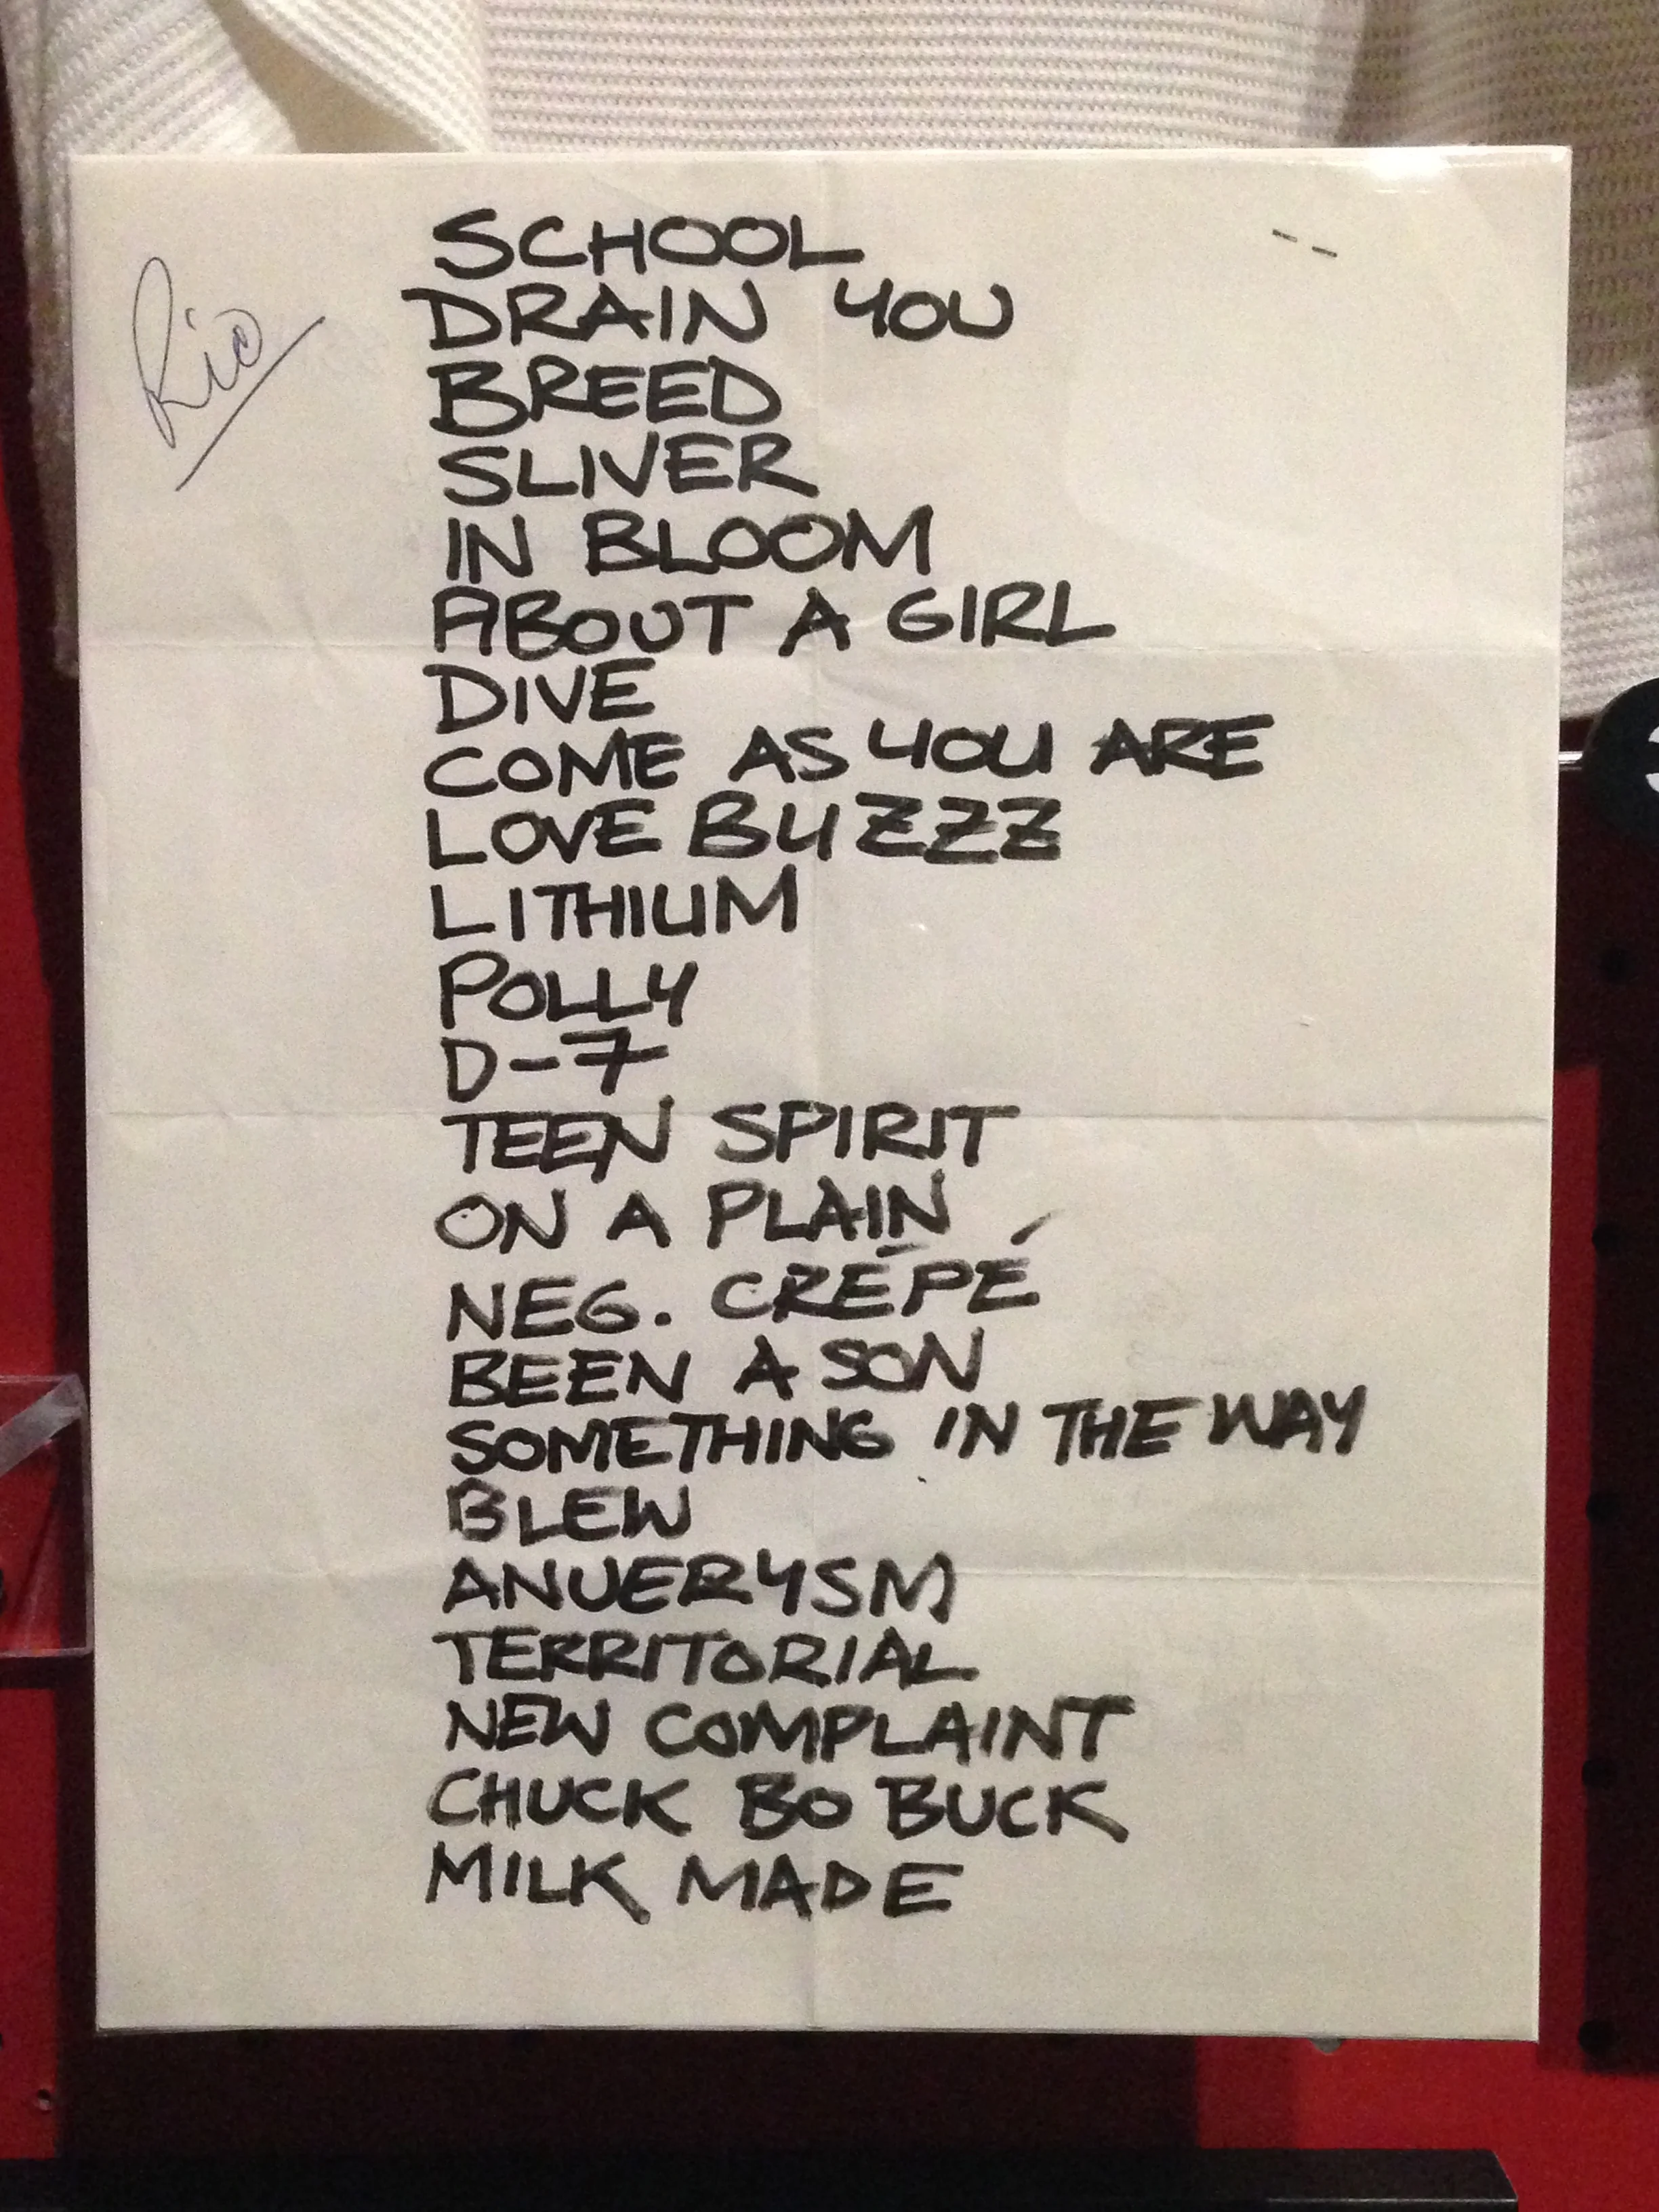 Rio
SCHOOL
DRAIN YOU
BREED
SLIVER
IN BLOOM
ABOUT A GIRL
DIVE
COME AS YOU ARE
LOVE BUZZZ
LITHIUM
POLLY
D-7
TEEN SPIRIT
ON A PLAIN
NEG. CRÉPÉ
BEEN A SON
SOMETHING IN THE WAY
BLEW
ANUERYSM
TERRITORIAL
NEW COMPLAINT
CHUCK BO BUCK
MILK MADE